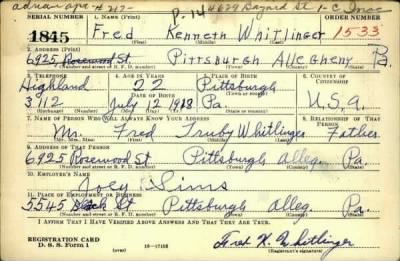 adrian apt #212- D-14 #4629 Bayard St 1-C
SERIAL NUMBER 1. NAME (Print) ORDER NUMBER
1845 Fred Kenneth Whitlinger 1533
(First) (Middle) (Last)
2. ADDRESS (Print)
6925 Rosewood St Pittsburgh Allegheny Pa.
(Number and street or R. F. D. number) (Town) (County) (State)
3. TELEPHONE 4. AGE IN YEARS 5. PLACE OF BIRTH 6. COUNTRY OF CITIZENSHIP
Highland 22 Pittsburgh
DATE OF BIRTH
3112 July 12 1918 Pa. U.S.A.
(Exchange) (Number) (Mo.) (Day) (Yr.) (State or country)
7. NAME OF PERSON WHO WILL ALWAYS KNOW YOUR ADDRESS 8. RELATIONSHIP OF THAT PERSON
Mr. Fred Truby Whitlinger Father
(Mr., Mrs., Miss) (First) (Middle) (Last)
9. ADDRESS OF THAT PERSON
6925 Rosewood St Pittsburgh Alleg. Pa.
(Number and street or R. F. D. number) (Town) (County) (State)
10. EMPLOYER'S NAME
Joey Sims
11. PLACE OF EMPLOYMENT OR BUSINESS
5545 St Pittsburgh Alleg. Pa.
(Number and street or R. F. D. number) (Town) (County) (State)
I AFFIRM THAT I HAVE VERIFIED ABOVE ANSWERS AND THAT THEY ARE TRUE.
REGISTRATION CARD
D. S. S. Form 1 (over) 16-17105 Fred K. Whitlinger
(Registrant's signature)